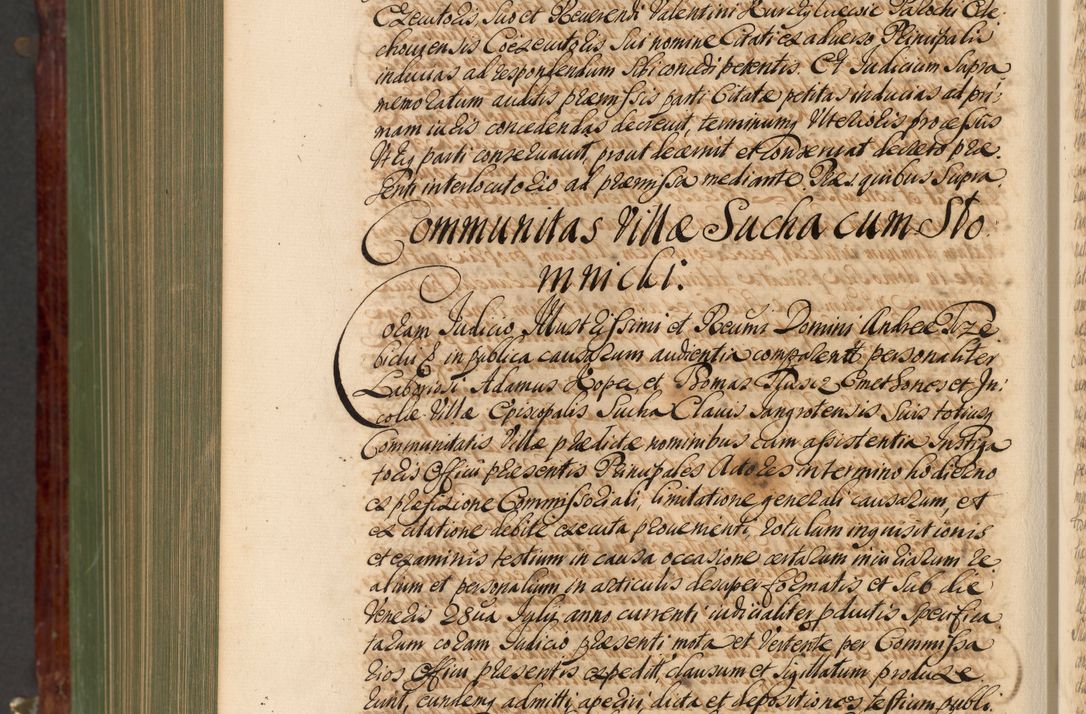 Executoris, suo et Reverendi Valentini Parochi Cele
choviensis Coexecutoris sui nomine Citati ex adverso Principalis
inducias ad respondendum sibi concedi petentis. Et Judicium supra
memoratum auditis præmissis parti Citatæ petitas inducias ad pri,
mam iuris concedendas decrevit, terminumq Ulterioris processus
Utriq parti conservavit, prout decernit et conservat decreto præ
senti interlocutorio ad præmissa mediante. Præs. quibus supra.
Communitas Villæ Sucha cum Sto
mnicki:
Coram Judicio Illustrissimi et Reumi Domini Andreæ Trze
bicki &c in publica causarum audientia comparentes personaliter
Laboriosi Adamus Kopec, et Thomas Emethones et In,
colæ Villæ Episcopalis Sucha Clavis Jangrotensis suis totiusq
Communitatis Villæ prædictæ nominibus cum assistentia Instiga
toris Officii præsentis Principales Actores in termino hodierno
ex præfixione Commissoriali, limitatione generali causarum, et
ex citatione debite executa provenienti, rotulum inquisitionis
et examinis testium in causa occasione certarum iniuriarum re
alium et personalium in articulis desuper formatis et sub die
Veneris 28va Julij anno currenti iudicialiter productis specifica
tarum coram Judicio præsenti mota et Vertente per Commissa
rios Officii præsentis expeditum clausum et sigillatum produxe
runt, eundemq admitti, aperiri, dicta et depositiones testium publi.